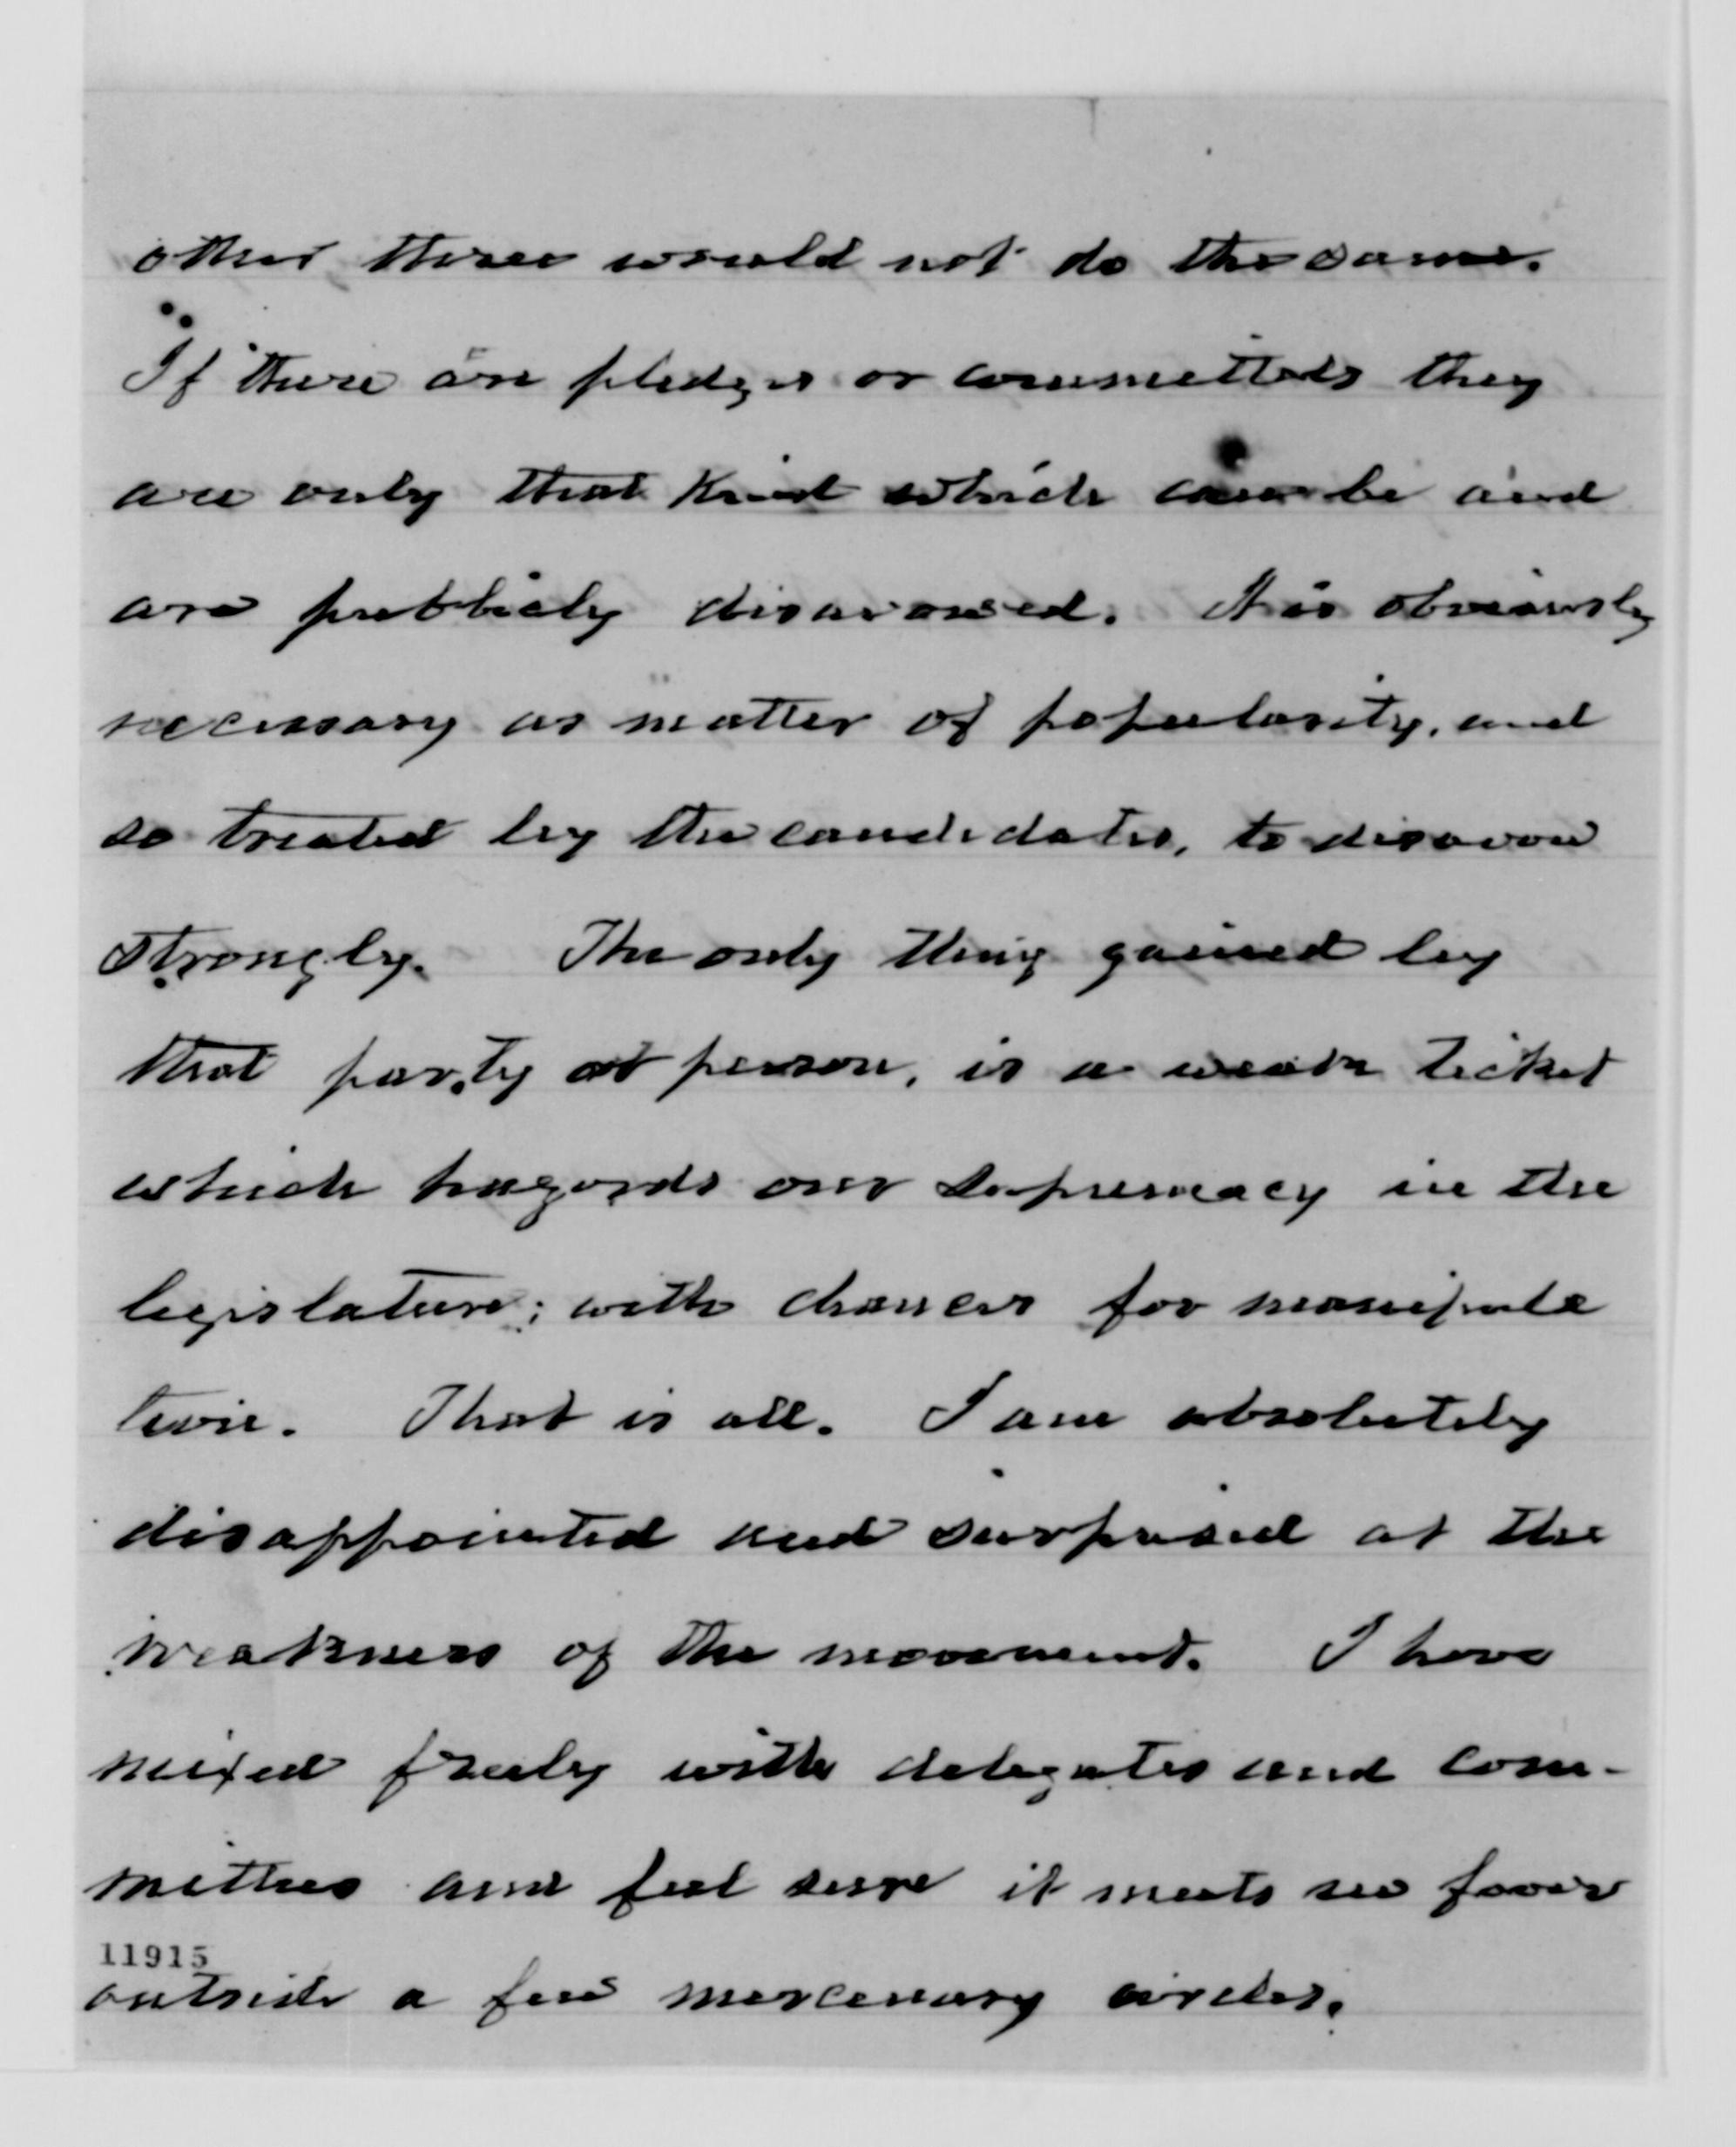 other three would not do the same.
If there are pledges or committals they
are only that kind which can be and
are publicly disavowed. It is obviously
necessary as matter of popularity, and
so treated by the candidates, to disavow
strongly. The only thing gained by
that party or person, is a weak ticket
which hazards our supremacy in the
legislature; with chances for manipula
tion. That is all. I am absolutely
disappointed and surprised at the
weakness of the movement. I have
mixed freely with delegates and com-
mittees and feel sure it meets no favor
11915
outside a few mercenary circles.